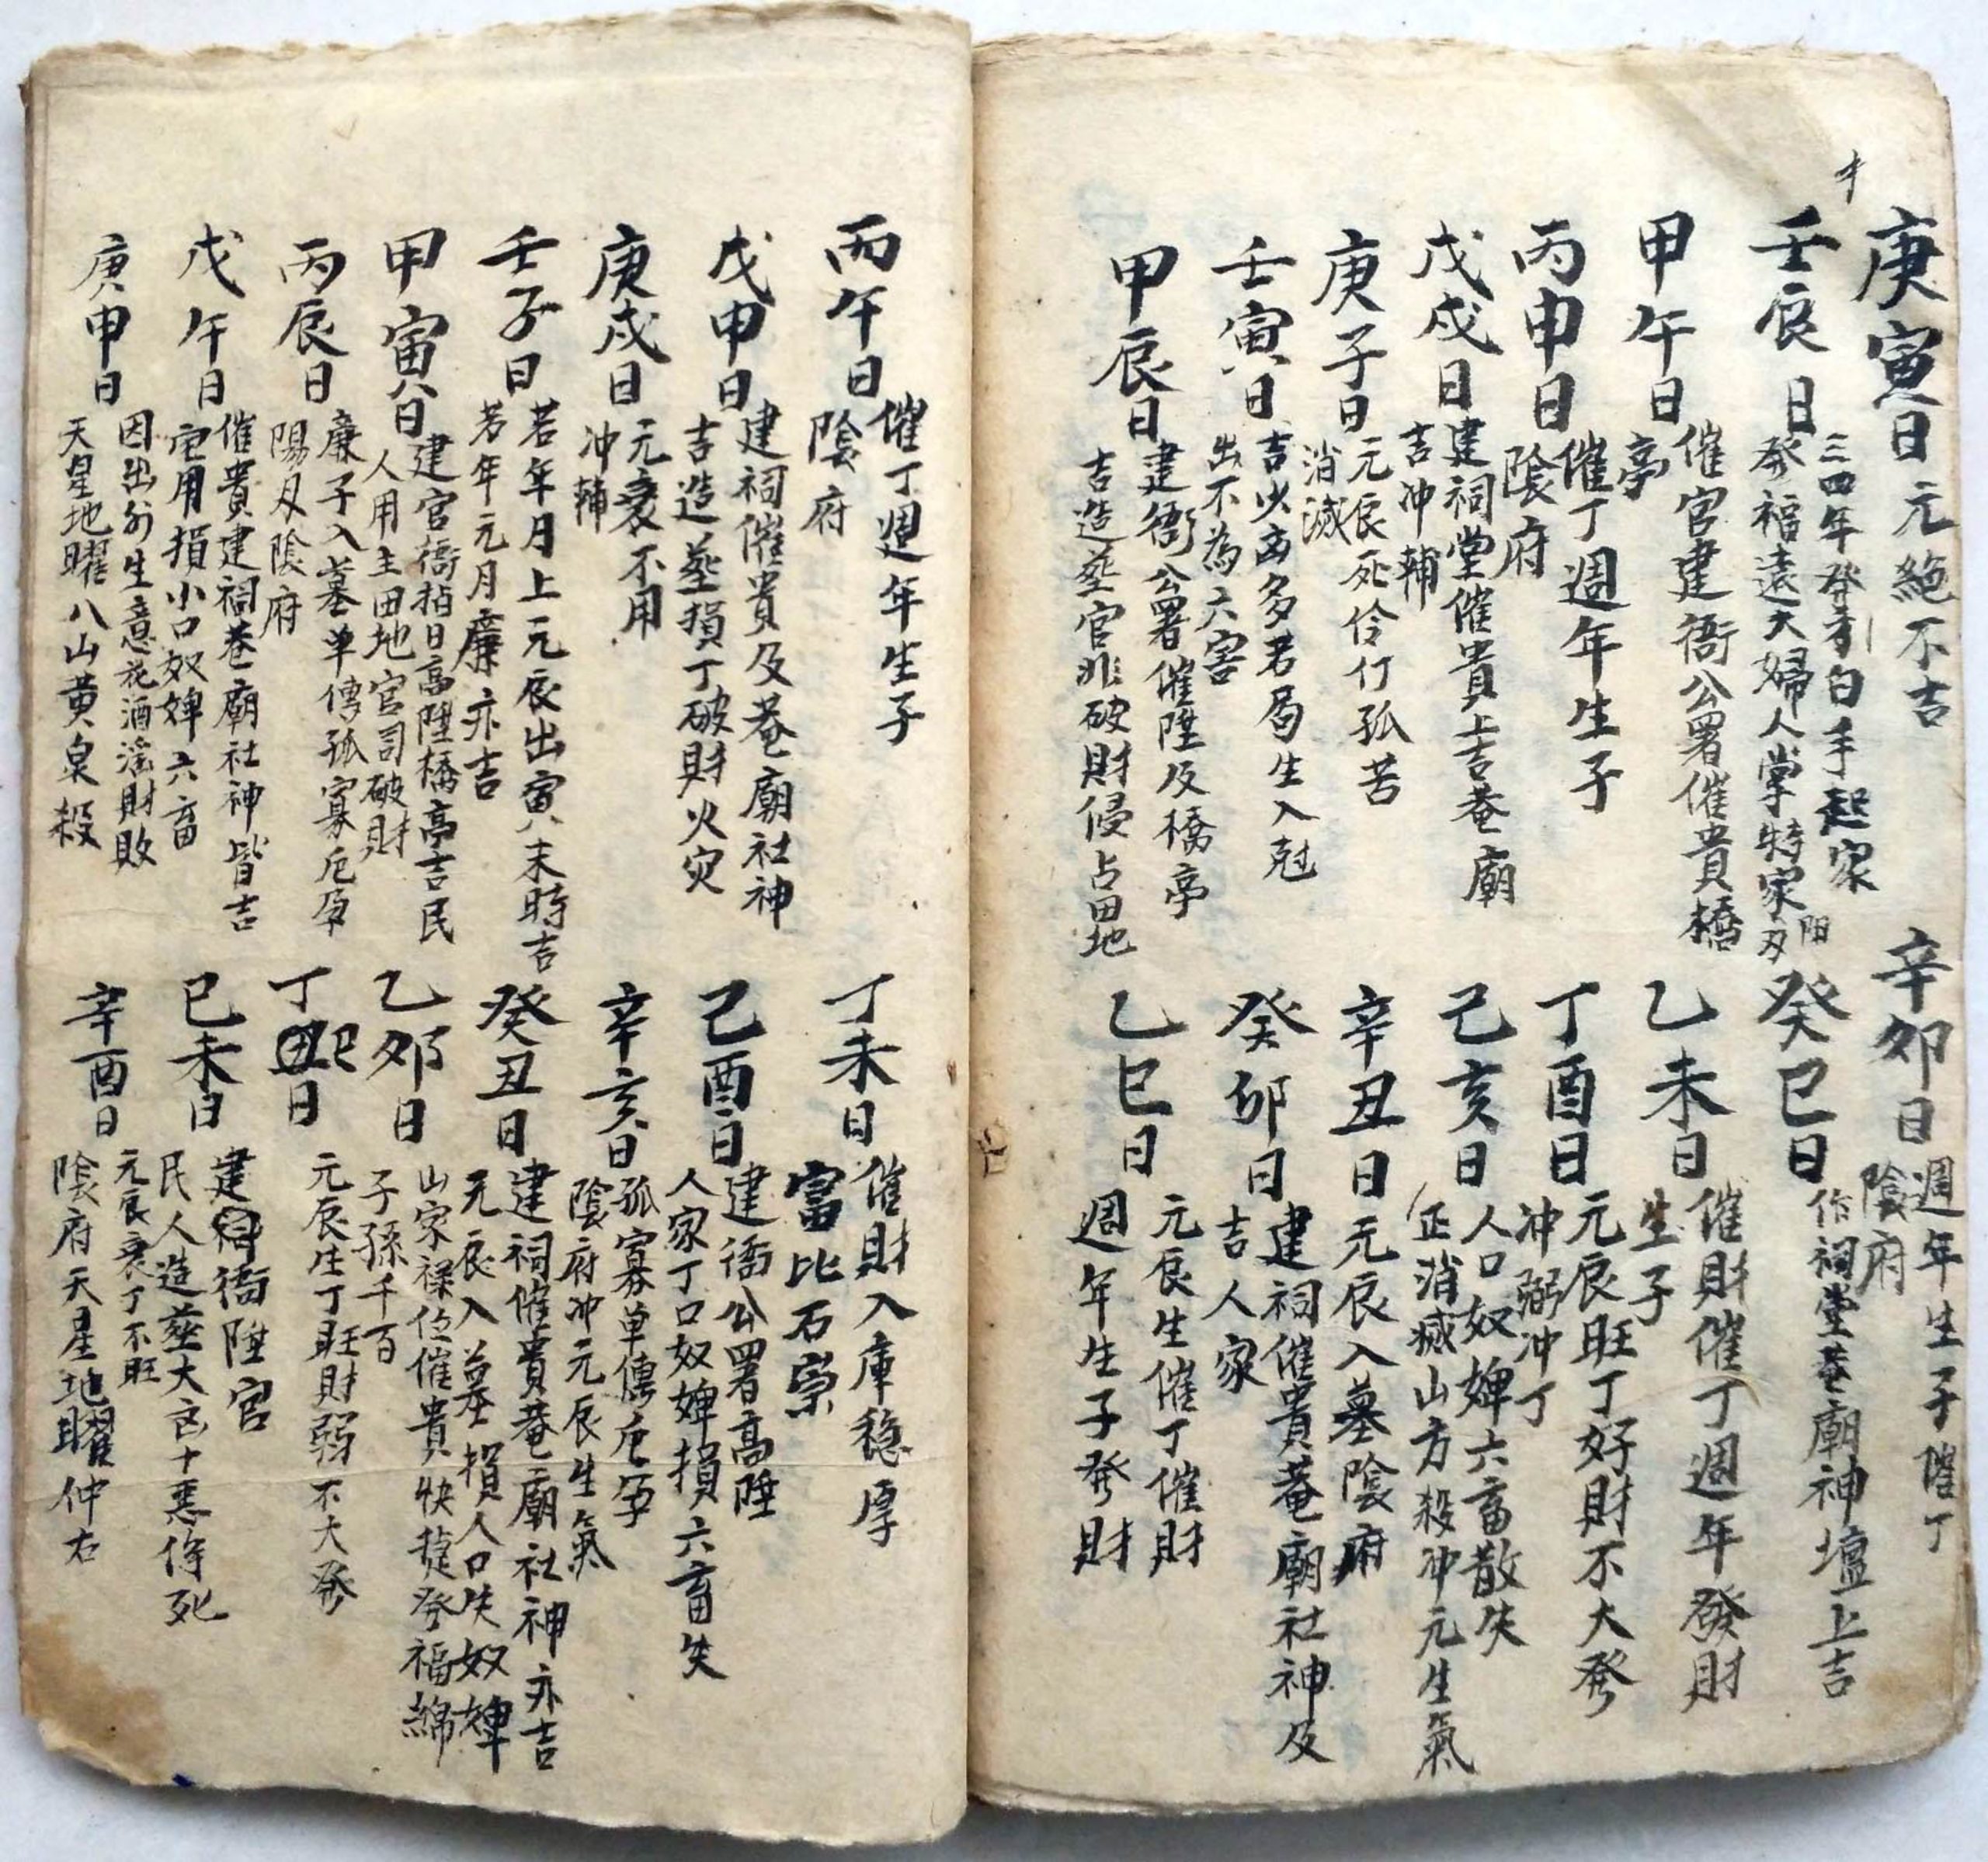 庚寅日
元絶不吉
辛卯日
週年生子催丁
陰府
壬辰日
三四年發財白手起家
發福遠大婦人掌特家
陽刃
癸巳日
作祠堂菴廟神壇上吉
甲午日
催官建衙公署催貴橋
亭
乙未日
催財催丁週年發財
生子
丙申日
催丁週年生子
陰府
丁酉日
元辰旺丁好財不大發
冲弼冲丁
戊戌日
建祠堂催貴上吉菴廟
吉冲輔
己亥日
人口奴婢六畜散失
正消滅山方殺冲元生氣
庚子日
元辰死伶仃孤苦
消滅
辛丑日
元辰入墓陰府
壬寅日
吉少凶多若局生入尅
出不為六害
癸卯日
建祠催貴菴廟社神及
吉人家
甲辰日
建衙公署催陞及橋亭
吉造塟官非破財侵占田地
乙巳日
元辰生催丁催財
週年生子發財
丙午日
催丁週年生子
陰府
丁未日
催財入庫穩厚
富比石崇
戊申日
建祠催貴及菴廟社神
吉造塟損丁破財火灾
己酉日
建衙公署高陞
人家丁口奴婢損六畜失
庚戌日
元衰不用
冲輔
辛亥日
孤寡單傳
陰府冲元辰生氣
壬子日
若年月上元辰出寅未時吉
若年元月廉亦吉
癸丑日
建祠催貴菴廟社神亦吉
元辰入墓損人口失奴婢
甲寅日
建官衙指日高陞橋亭吉民
人用主田地官司破財
乙卯日
山家祿位催貴快捷發福綿
子孫千百
丙辰日
廉子入墓单傳孤寡
陽刃陰府
丁巳日
元辰生丁旺財弱不大發
戊午日
催貴建祠菴廟社神皆吉
宅用損小口奴婢六畜
己未日
建衙陞官
民人造塟大凶十惡侼死
庚申日
因出外生意花酒淫財敗
天星地曜八山黄泉殺
辛酉日
元辰衰丁不旺
陰府天星地曜仲右